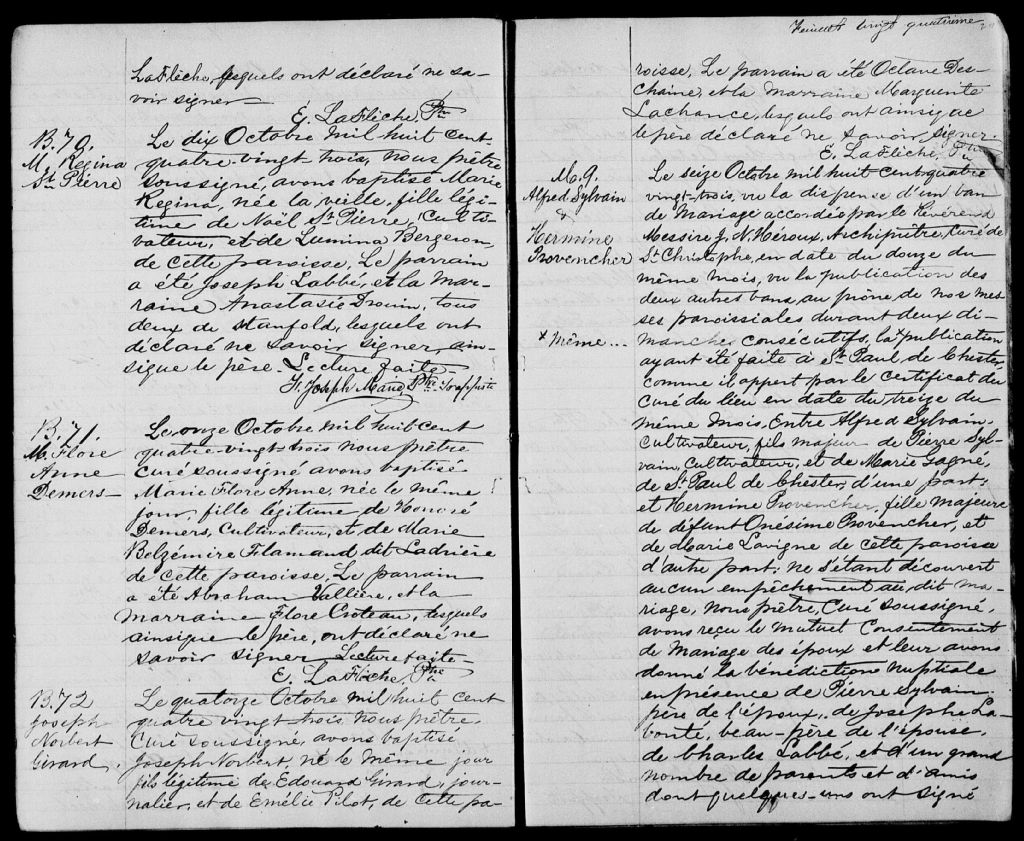 LaFlèche, lesquels ont déclaré ne sa-
voir signer
E. LaFlèche, Ptre
B.70.
M. Regina
St. Pierre
Le dix Octobre mil huit cent
quatre-vingt trois, nous prêtre
soussigné, avons baptisé Marie
Regina, née la veille, fille légi-
time de Noël St. Pierre, Culti-
vateur, et de Lumina Bergeron,
de cette paroisse. Le parrain
a été Joseph Labbé, et la mar-
raine Anastasie Drouin, tous
deux de Stanfold, lesquels ont
déclaré ne savoir signer, ain-
si que le père. Lecture faite
F. Joseph Marie Ptre Trappiste
B.71.
M. Flore
Anne
Demers
Le onze Octobre mil huit cent
quatre-vingt trois nous prêtre
curé soussigné avons baptisé
Marie Flore Anne, née le même
jour, fille légitime de Honoré
Demers, Cultivateur, et de Marie
Belzémire Flamand dit Ladrière
de cette paroisse. Le parrain
a été Abraham Vallière, et la
marraine Flore Croteau, lesquels
ainsi que le père, ont déclaré ne
savoir signer Lecture faite
E. LaFlèche, Ptre
B.72
Joseph
Norbert
Girard
Le quatorze Octobre mil huit cent
quatre vingt trois nous prêtre,
Curé soussigné, avons baptisé
Joseph Norbert, né le même jour
fils légitime de Edouard Girard, jour-
nalier, et de Emélie Pilot, de cette pa-
Feuillet vingt quatrième
roisse. Le parrain a été Octave Des-
chaine, et la marraine Marguerite
Lachance, lesquels ont ainsi que
le père déclaré ne savoir signer.
E. LaFlèche, Ptre
M.9.
Alfred Sylvain
&
Hermine
Provencher
Le seize Octobre mil huit cent quatre
vingt-trois, vu la dispense d'un ban
de Mariage accordée par le Révérend
Messire J. N. Héroux, Archiprêtre, Curé de
St. Christophe, en date du douze du
même mois, vu la publication des
deux autres bans, au prône, de nos mes-
ses paroissiales durant deux di-
x Même...
manches consécutifs, la x publication
ayant été faite à St. Paul de Chester,
comme il appert par le certificat du
curé du lieu en date du treize du
même mois, Entre Alfred Sylvain
Cultivateur, fils majeur de Pierre Syl-
vain, Cultivateur, et de Marie Gagné,
de St. Paul de Chester, d'une part;
et Hermine Provencher, fille majeure
de défunt Onésime Provencher, et
de Marie Lavigne de cette paroisse
d'autre part; ne s'étant découvert
aucun empêchement au dit ma-
riage, nous prêtre, Curé soussigné,
avons reçu le mutuel Consentement
de Mariage des époux et leur avons
donné la bénédiction nuptiale
en présence de Pierre Sylvain
père de l'époux, de Joseph La-
bonté, beau-père de l'épouse,
de Charles Labbé, et d'un grand
nombre de parents et d'amis
dont quelques-uns ont signé